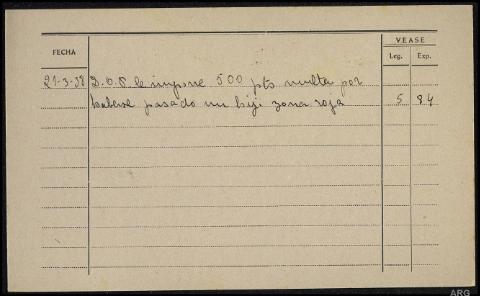 VEASE
FECHA
Leg. Exp.
21-3-38 D.O.P. le impone 500 pts multa por
haberse pasado un hijo zona roja 5 84
ARG